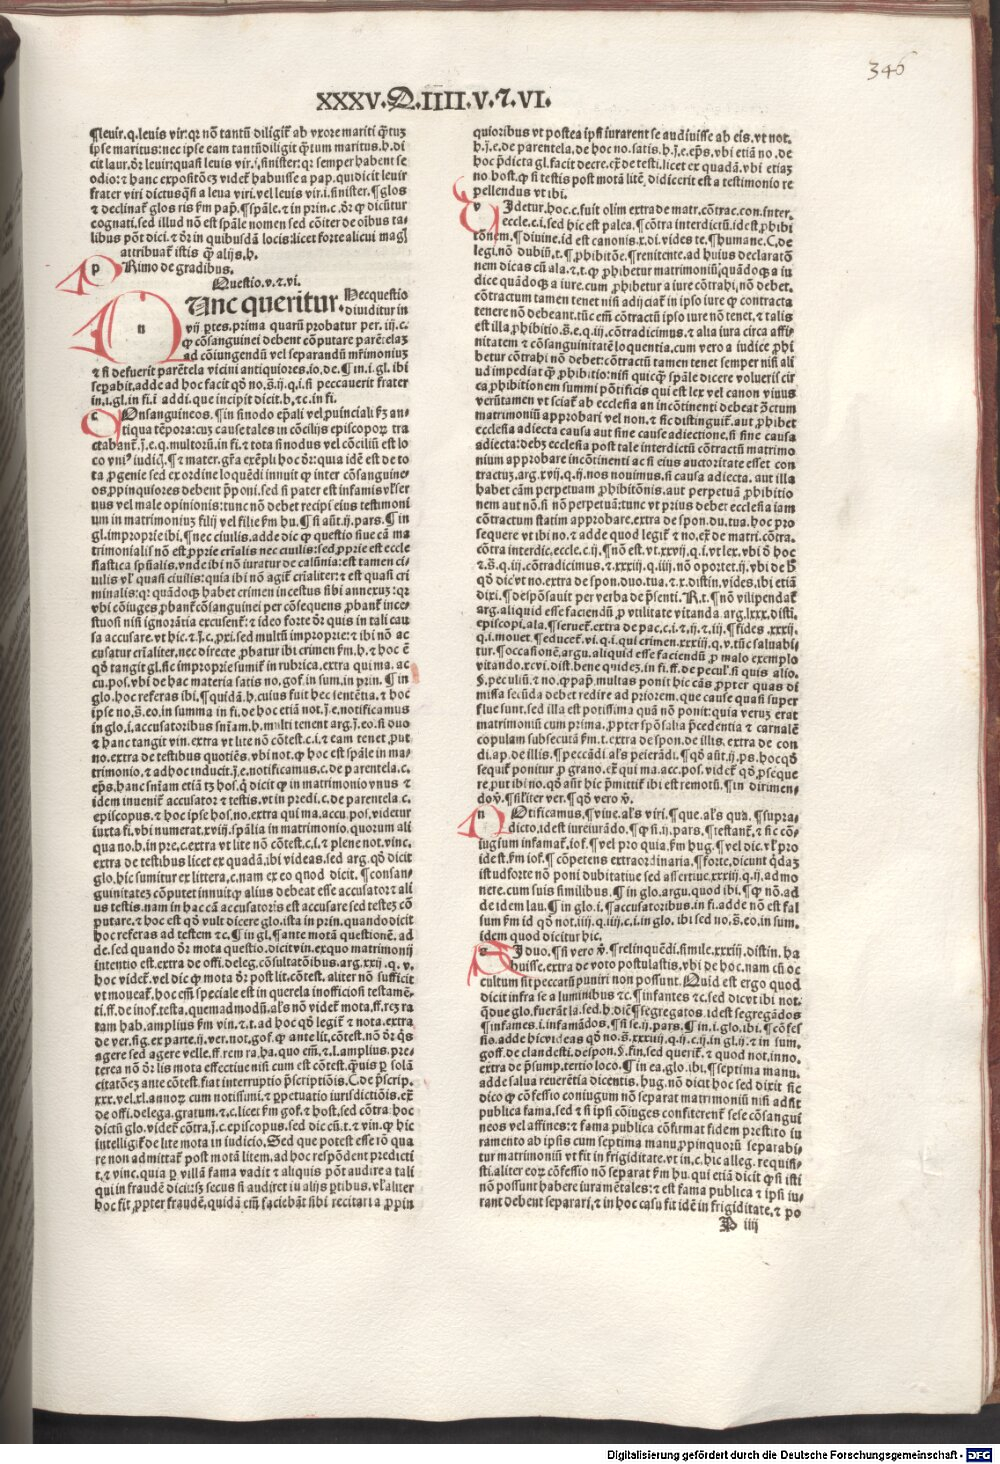 346
XXXV.Q.IIII.V.⁊.VI.
¶leuir.q.leuis vir:qꝛ nō tantū diligit̄ ab vxore mariti q̄tuꝫ
ipse maritus:nec ipse eam tantū diligit q̄tum maritus.h.di
cit laur.dr̄ leuir:quasi leuis vir.i.sinister:qꝛ semper habent se
odio:⁊ hanc expositōeꝫ videt̄ habuisse a pap.qui dicit leuir
frater viri dictus q̄si a leua viri.vel leuis vir.i.sinister.¶glos
⁊ declinat̄ glos ris ẜm pap̄.¶spāle.⁊ in prin.c.dr̄ ꝙ dicūtur
cognati.sed illud nō est spāle nomen sed cōiter de oībus ta-
libus pōt dici.⁊ dr̄ in quibusdā locis:licet forte alicui maḡ
attribuat̄ istis q̄ alijs.h.
pRimo de gradibus.
Questio.v.⁊.vi.
nUnc queritur. Hec questio
diuiditur in
vij p̄tes.prima quarū probatur per.iij.c.
ꝙ cōsanguinei debent cōputare parē:elaꝫ
ad cōiungendū vel separandū mr̄imoniuꝫ
⁊ si defuerit parētela vicini antiquiores.io.de.¶in.i.gl.ibi
sep̄abit.adde ad hoc facit qd̄ no.s̄.ij.q.i.si peccauerit frater
in.i.gl.in fi.i addi.que incipit dicit.h.⁊c.in fi.
cOnsanguineos.¶in sinodo ep̄ali vel ꝓuinciali ẜm an-
tiqua tēpora:cuꝫ cause tales in cōcilijs episcopoꝝ tra
ctabant̄.j̄.e.q.multorū.in fi.⁊ tota sinodus vel cōciliū est lo
co vniꝰ iudicꝭ.¶⁊ mater.gr̄a exēpli hoc dr̄:quia idē est de to
ta ꝓgenie sed ex ordine loquēdi innuit ꝙ inter cōsanguine-
os ꝓpinquiores debent p̄poni.sed si pater est infamis vl̓ ser
uus vel male opinionis:tunc nō debet recipi eius testimoni
um in matrimoniuꝫ filij vel filie ẜm hu.¶si aūt.ij.pars.¶in
gl.improprie ibi.¶nec ciuilis.adde dic ꝙ questio siue cā ma
trimonialis nō est ꝓprie cr̄ialis nec ciuilis:sed ꝓprie est eccle
siastica spūalis.vnde ibi nō iuratur de calūnia:est tamen ci-
uilis vl̓ quasi ciuilis:quia ibi nō agit̄ cr̄ialiter:⁊ est quasi cri
minalis:qꝛ quādoqꝫ habet crimen incestus sibi annexuꝫ:qꝛ
vbi cōiuges ꝓbant̄ cōsanguinei per cōsequens ꝓbant̄ ince-
stuosi nisi ignorātia excusent̄:⁊ ideo forte dr̄ quis in tali cau
sa accusare.vt hic ⁊.j̄.c.ꝓxi.sed multū improprie:⁊ ibi nō ac
cusatur cr̄ialiter.nec directe ꝓbatur ibi crimen ẜm.h.⁊ hoc ē
qd̄ tangit gl.sic improprie sumit̄ in rubrica.extra qui ma.ac
cu.pos.vbi de hac materia satis no.gof.in sum.in prin.¶in
glo.hoc referas ibi.¶quidā.h.cuius fuit hec sentētia.⁊ hoc
ipse no.s̄.eo.in summa in fi.de hoc etiā not.j̄.e.notificamus
in glo.i.accusatoribus sniam.h.multi tenent arg.j̄.eo.si duo
⁊ hanc tangit vin.extra vt lite nō cōtest.c.i.⁊ eam tenet ,put
no.extra de testibus quotiēs.vbi not.ꝙ hoc est spāle in ma-
trimonio.⁊ ad hoc inducit.j̄.e.notificamus.c.de parentela.c.
ep̄s.hanc sniam etiā tꝫ hos.q̄ dicit ꝙ in matrimonio vnus ⁊
idem inuenit̄ accusator ⁊ testis.vt in predi.c.de parentela.c.
episcopus.⁊ hoc ipse hos.no.extra qui ma.accu.pos.videtur
iuxta fi.vbi numerat.xviij.spālia in matrimonio.quorum ali
qua no.h.in pre.c.extra vt lite nō cōtest.c.i.⁊ plene not.vinc.
extra de testibus licet ex quadā.ibi videas.sed arg.qd̄ dicit
glo.hic sumitur ex littera.c.nam ex eo quod dicit.¶consan-
guinitateꝫ cōputet innuit:ꝙ alius debeat esse accusator:⁊ ali
us testis.nam in hac cā accusatoris est accusare sed testeꝫ cō
putare.⁊ hoc est qd̄ vult dicere glo.ista in prin.quando dicit
hoc referas ad testem ⁊c.¶in gl.¶ante motā questionē.ad
de.sed quando dr̄ mota questio.dicit vin.ex quo matrimonij
intentio est.extra de offi.deleg.cōsultatōibus.arg.xxij.q.v.
hoc videt̄.vel dic ꝙ mota dr̄ post lit.cōtest.aliter nō sufficit
vt moueat̄.hoc em̄ speciale est in querela inofficiosi testamē-
ti.ff.de inof.testa.quemadmodū.al̓s nō videt̄ mota.ff.reꝫ ra
tam hab.amplius ẜm vin.⁊.t.ad hoc qd̄ legit̄ ⁊ nota.extra
de ver.sig.ex parte.ij.ver.not.gof.ꝙ ante lit.cōtest.nō dr̄ qs̓
agere sed agere velle.ff.rem ra.ha.quo em̄.⁊.l.amplius.pre-
terea nō dr̄ lis mota effectiue nisi cum est cōtest.q̄uis ꝑ solā
citatōeꝫ ante cōtest.fiat interruptio p̄scriptiōis.C.de p̄scrip.
xxx.vel.xl.annoꝝ cum notissimi.⁊ ꝑpetuatio iurisdictiōis.ex̄
de offi.delega.gratum.⁊.c.licet ẜm gof.⁊ host.sed cōtra:hoc
dictū glo.videt̄ cōtra.j̄.c.episcopus.sed dic cū.t.⁊ vin.ꝙ hic
intelligit̄ de lite mota in iudicio.Sed que potest esse rō qua
re non admittat̄ post motā litem.ad hoc respōdent predicti
t.⁊ vinc.quia ꝑ villā fama vadit ⁊ aliquis pōt audire a tali
qui in fraudē dicit:sꝫ secus si audiret iu alijs ꝑtibus.vl̓ aliter
hoc fit ꝓpter fraudē.quidā em̄ faciebāt sibi recitari a ꝓpin
quioribus vt postea ipsi iurarent se audiuisse ab eis.vt not.
h.j̄.e.de parentela.de hoc no.satis.h.j̄.e.ep̄s.vbi etiā no.de
hoc p̄dicta gl.facit decre.ex̄ de testi.licet ex quadā.vbi etiaꝫ
no host.ꝙ si testis post motā litē.didicerit est a testimonio re
pellendus vt ibi.
vIdetur.hoc.c.fuit olim extra de matr.cōtrac.con.inter.
eccle.c.i.sed hic est palea.¶cōtra interdictū.id est ꝓhibi
tōnem.¶diuine.id est canonis.x.di.vides te.¶humane.C.de
legi.nō dubiū.t.¶ꝓhibitōe.¶renitente.ad huius declaratō
nem dicas cū ala.⁊.t.ꝙ ꝓhibetur matrimoniū:quādoqꝫ a iu
dice quādoqꝫ a iure.cum ꝓhibetur a iure cōtrahi.nō debet.
cōtractum tamen tenet nisi adijciat̄ in ipso iure ꝙ contracta
tenere nō debeant.tūc em̄ cōtractū ipso iure nō tenet.⁊ talis
est illa ꝓhibitio.s̄.e.q.iij.cōtradicimus.⁊ alia iura circa affi-
nitatem ⁊ cōsanguinitatē loquentia.cum vero a iudice ꝓhi
betur cōtrahi nō debet:cōtractū tamen tenet semper nisi ali
ud impediat q̄ ꝓhibitio:nisi quicq̄ spāle dicere volueris cir
ca ꝓhibitionem summi pōtificis qui est lex vel canon viuus
verūtamen vt sciat̄ ab ecclesia an incōtinenti debeat ꝯtractum
matrimoniū approbari vel non.⁊ sic distinguit̄.aut ꝓhibet
ecclesia adiecta causa aut sine cause adiectione.si sine causa
adiecta:debꝫ ecclesia post tale interdictū cōtractū matrimo
nium approbare incōtinenti ac si eius auctoritate esset con
tractuꝫ.arg.xvij.q.ij.nos nouimus.si causa adiecta.aut illa
habet cām perpetuam ꝓhibitōnis.aut perpetuā ꝓhibitio
nem aut nō.si nō perpetuā:tunc vt prius debet ecclesia iam
cōtractum statim approbare.extra de spon.du.tua.hoc pro
sequere vt ibi no.⁊ adde quod legit̄ ⁊ no.ex̄ de matri.cōtra.
cōtra interdic.eccle.c.ij.¶nō est.vt.xxvij.q.i.vt lex.vbi ꝺ hoc
⁊.s̄.q.iij.cōtradicimus.⁊.xxxiij.q.iiij.nō oportet.ij.vbi de h̄
qd̄ dic̓ vt no.extra de spon.duo.tua.⁊.x.distin.vides.ibi etiā
dixi.¶despōsauit per verba de p̄senti.R.t.¶nō vilipendat̄
arg.aliquid esse faciendū ꝓ vtilitate vitanda arg.lxxx.disti.
episcopi.ala.¶seruet̄.extra de pac.c.i.⁊.ij.⁊.iij.¶fides.xxxij.
q.i.mouet.¶educet̄.vi.q.i.qui crimen.xxxiij.q.v.tūc saluabi-
tur.¶occasionē.argu.aliquid esse faciendū ꝓ malo exemplo
vitando.xcvi.dist.bene quideꝫ.in fi.ff.de pecul.si quis alio.
§.peculiū.⁊ no.ꝙ pap̄.multas ponit hic cās ꝓpter quas di
missa secūda debet redire ad priorem.que cause quasi super
flue sunt.sed illa est potissima quā nō ponit:quia veruꝫ erat
matrimoniū cum prima.ꝓpter spōsalia p̄cedentia ⁊ carnalē
copulam subsecutā ẜm.t.extra de spon.de illis.extra de con
di.ap.de illis.¶peccādi al̓s peierādi.¶qd̄ aūt.ij.ps.hoc qd̄
sequit̄ ponitur ꝓ grano.ex̄ qui ma.acc.pos.videt̄.qd̄ ꝓseque
re ꝓut ibi no.qd̄ aūt hic p̄mittit̄ ibi est remotū.¶in dirimen-
do v̄.¶sil̓iter ver.¶qd̄ vero v̄.
nOtificamus.¶viue.al̓s viri.¶que.al̓s quā.¶supra-
dicto.id est iureiurādo.¶ꝙ si.ij.pars.¶testant̄.⁊ sic cō-
iugium infamat̄.ioſ.¶vel pro quia.ẜm hug.¶vel dic.vl̓ pro
id est.ẜm ioſ.¶cōpetens extraordinaria.¶forte.dicunt q̄daꝫ
istud forte nō poni dubitatiue sed assertiue.xxxiij.q.ij.admo
nere.cum suis similibus.¶in glo.argu.quod ibi.¶ꝙ nō.ad
de idem lau.¶in glo.i.¶accusatoribus.in fi.adde nō est fal
sum ẜm id qd̄ not.iiij.q.iiij.c.i.in glo.ibi sed no.s̄.eo.in sum.
idem quod dicitur hic.
sI duo.¶si vero v̄.¶relinquēdi.simile.xxxiij.distin.ha
buisse.extra de voto postulastis.vbi de hoc.nam cū oc
cultum sit peccatū puniri non possunt.Quid est ergo quod
dicit infra se a luminibus ⁊c.¶infantes ⁊c.sed dic̓vt ibi not.
q̄ due glo.fuerāt la.sed.h.dic̄ ¶segregatos.id est segregādos
¶infames.i.infamādos.¶si se.ij.pars.¶in.i.glo.ibi.¶cōfes
sio.adde hic videas qd̄ no.s̄.xxxiij.q.ij.c.ij.in gl.ij.⁊ in sum.
goff.de clandesti.despon.§.fin.sed querit̄.⁊ quod not.inno.
extra de p̄sump.tertio loco.¶in ea.glo.ibi.¶septima manu.
adde salua reuerētia dicentis.hug.nō dicit hoc sed dixit sic
dico ꝙ cōfessio coniugum nō separat matrimoniū nisi adsit
publica fama.sed ⁊ si ipsi cōiuges confiterent̄ sese cōsangui
neos vel affines:⁊ fama publica cōfirmat fidem prestito iu
ramento ab ipsis cum septima manu ꝓpinquorū separabi-
tur matrimoniū vt fit in frigiditate.vt in.c.hic alleg.requisi-
sti.aliter eoꝝ cōfessio nō separat ẜm hu.qui etiā dicit ꝙ si isti
nō possunt habere iuramētales:⁊ est fama publica ⁊ ipsi iu-
rant debent separari.⁊ in hoc casu fit idē in frigiditate.⁊ po
P iiij
Digitalisierung gefördert durch die Deutsche Forschungsgemeinschaft - DFG